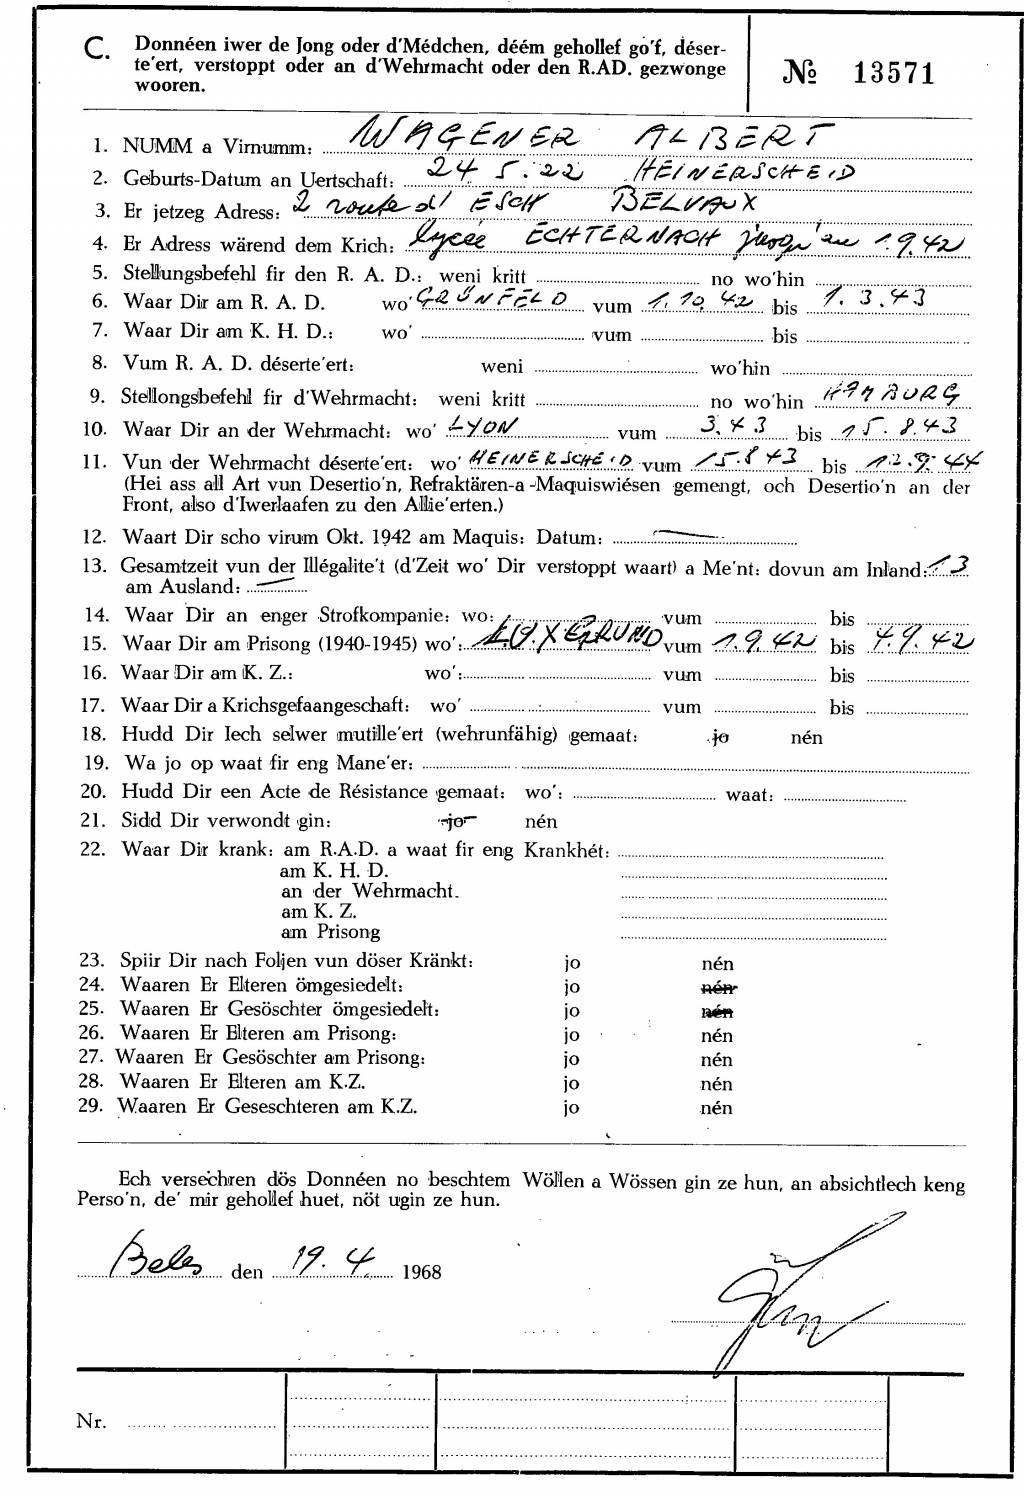 C. Donnéen iwer de Jong oder d'Médchen, déém gehollef go'f, déser-
te'ert, verstoppt oder an d'Wehrmacht oder den R.AD. gezwonge
wooren.
№ 13571
1. NUMM a Virnumm: WAGENER ALBERT
2. Geburts-Datum an Uertschaft: 24 5.22 HEINERSCHEID
3. Er jetzeg Adress: 2 route d'ESCH BELVAUX
4. Er Adress wärend dem Krich: lycée ECHTERNACH jusqu'au 1.9.42
5. Stellungsbefehl fir den R. A. D.: weni kritt no wo'hin
6. Waar Dir am R. A. D. wo' GRÜNFELD vum 1.10.42 bis 1.3.43
7. Waar Dir am K. H. D.: wo' vum bis
8. Vum R. A. D. déserte'ert: weni wo'hin
9. Stellongsbefehl fir d'Wehrmacht: weni kritt no wo'hin HAMBURG
10. Waar Dir an der Wehrmacht: wo' LYON vum 3.43 bis 15.8.43
11. Vun der Wehrmacht déserte'ert: wo' HEINERSCHEID vum 15.8 43 bis 12.9.44
(Hei ass all Art vun Desertio'n, Refraktären-a-Maquiswiésen gemengt, och Desertio'n an der
Front, also d'Iwerlaafen zu den Allie'erten.)
12. Waart Dir scho virum Okt. 1942 am Maquis: Datum: —
13. Gesamtzeit vun der Illégalite't (d'Zeit wo' Dir verstoppt waart) a Me'nt: dovun am Inland: 13
am Ausland: —
14. Waar Dir an enger Strofkompanie: wo: vum bis
15. Waar Dir am Prisong (1940-1945) wo': LUX GRUND vum 1.9.42 bis 7.9.42
16. Waar Dir am K. Z.: wo': vum bis
17. Waar Dir a Krichsgefaangeschaft: wo' vum bis
18. Hudd Dir Iech selwer mutille'ert (wehrunfähig) gemaat: jo nén
19. Wa jo op waat fir eng Mane'er:
20. Hudd Dir een Acte de Résistance gemaat: wo': waat:
21. Sidd Dir verwondt gin: jo nén
22. Waar Dir krank: am R.A.D. a waat fir eng Krankhét:
am K. H. D.
an der Wehrmacht.
am K. Z.
am Prisong
23. Spiir Dir nach Foljen vun döser Kränkt: jo nén
24. Waaren Er Elteren ömgesiedelt: jo nén
25. Waaren Er Gesöschter ömgesiedelt: jo nén
26. Waaren Er Elteren am Prisong: jo nén
27. Waaren Er Gesöschter am Prisong: jo nén
28. Waaren Er Elteren am K.Z. jo nén
29. Waaren Er Geseschteren am K.Z. jo nén
Ech versechren dös Donnéen no beschtem Wöllen a Wössen gin ze hun, an absichtlech keng
Perso'n, de' mir gehollef huet, nöt ugin ze hun.
Beles den 19.4. 1968
Nr.